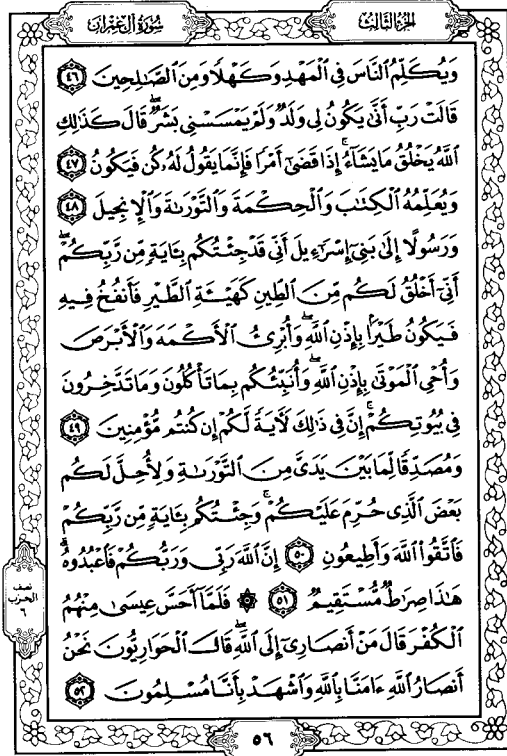 الجزء الثالث
سورة آل عمران
وَيُكَلِّمُ ٱلنَّاسَ فِي ٱلْمَهْدِ وَكَهْلًا وَمِنَ ٱلصَّٰلِحِينَ ٤٦
قَالَتْ رَبِّ أَنَّىٰ يَكُونُ لِي وَلَدٌ وَلَمْ يَمْسَسْنِي بَشَرٌ ۖ قَالَ كَذَٰلِكِ
ٱللَّهُ يَخْلُقُ مَا يَشَآءُ ۚ إِذَا قَضَىٰٓ أَمْرًا فَإِنَّمَا يَقُولُ لَهُۥ كُن فَيَكُونُ ٤٧
وَيُعَلِّمُهُ ٱلْكِتَٰبَ وَٱلْحِكْمَةَ وَٱلتَّوْرَىٰةَ وَٱلْإِنجِيلَ ٤٨
وَرَسُولًا إِلَىٰ بَنِيٓ إِسْرَٰٓءِيلَ أَنِّي قَدْ جِئْتُكُم بِـَٔايَةٍ مِّن رَّبِّكُمْ ۖ
أَنِّيٓ أَخْلُقُ لَكُم مِّنَ ٱلطِّينِ كَهَيْـَٔةِ ٱلطَّيْرِ فَأَنفُخُ فِيهِ
فَيَكُونُ طَيْرًۢا بِإِذْنِ ٱللَّهِ ۖ وَأُبْرِئُ ٱلْأَكْمَهَ وَٱلْأَبْرَصَ
وَأُحْيِ ٱلْمَوْتَىٰ بِإِذْنِ ٱللَّهِ ۖ وَأُنَبِّئُكُم بِمَا تَأْكُلُونَ وَمَا تَدَّخِرُونَ
فِي بُيُوتِكُمْ ۚ إِنَّ فِي ذَٰلِكَ لَءَايَةً لَّكُمْ إِن كُنتُم مُّؤْمِنِينَ ٤٩
وَمُصَدِّقًا لِّمَا بَيْنَ يَدَيَّ مِنَ ٱلتَّوْرَىٰةِ وَلِأُحِلَّ لَكُم
بَعْضَ ٱلَّذِي حُرِّمَ عَلَيْكُمْ ۚ وَجِئْتُكُم بِـَٔايَةٍ مِّن رَّبِّكُمْ
فَٱتَّقُوا۟ ٱللَّهَ وَأَطِيعُونِ ٥٠ إِنَّ ٱللَّهَ رَبِّي وَرَبُّكُمْ فَٱعْبُدُوهُ ۗ
هَٰذَا صِرَٰطٌ مُّسْتَقِيمٌ ٥١ ۞ فَلَمَّآ أَحَسَّ عِيسَىٰ مِنْهُمُ
ٱلْكُفْرَ قَالَ مَنْ أَنصَارِيٓ إِلَى ٱللَّهِ ۖ قَالَ ٱلْحَوَارِيُّونَ نَحْنُ
أَنصَارُ ٱللَّهِ ءَامَنَّا بِٱللَّهِ وَٱشْهَدْ بِأَنَّا مُسْلِمُونَ ٥٢
نصف
الحزب
٦
٥٦